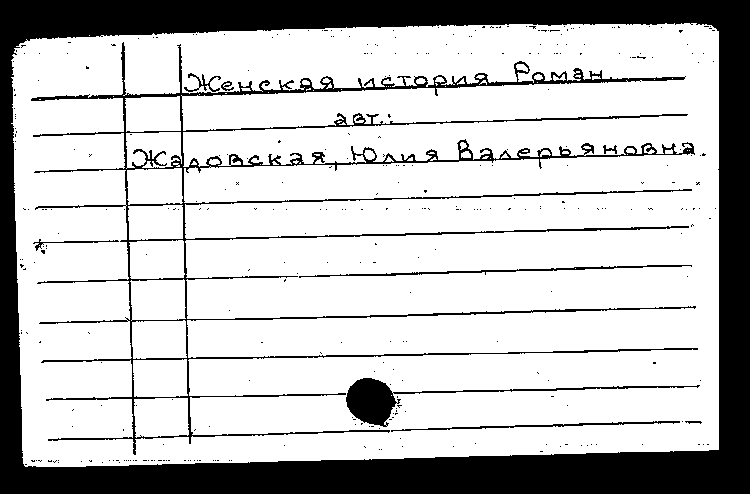 Женская история. Роман.
авт.:
Жадовская, Юлия Валерьяновна.